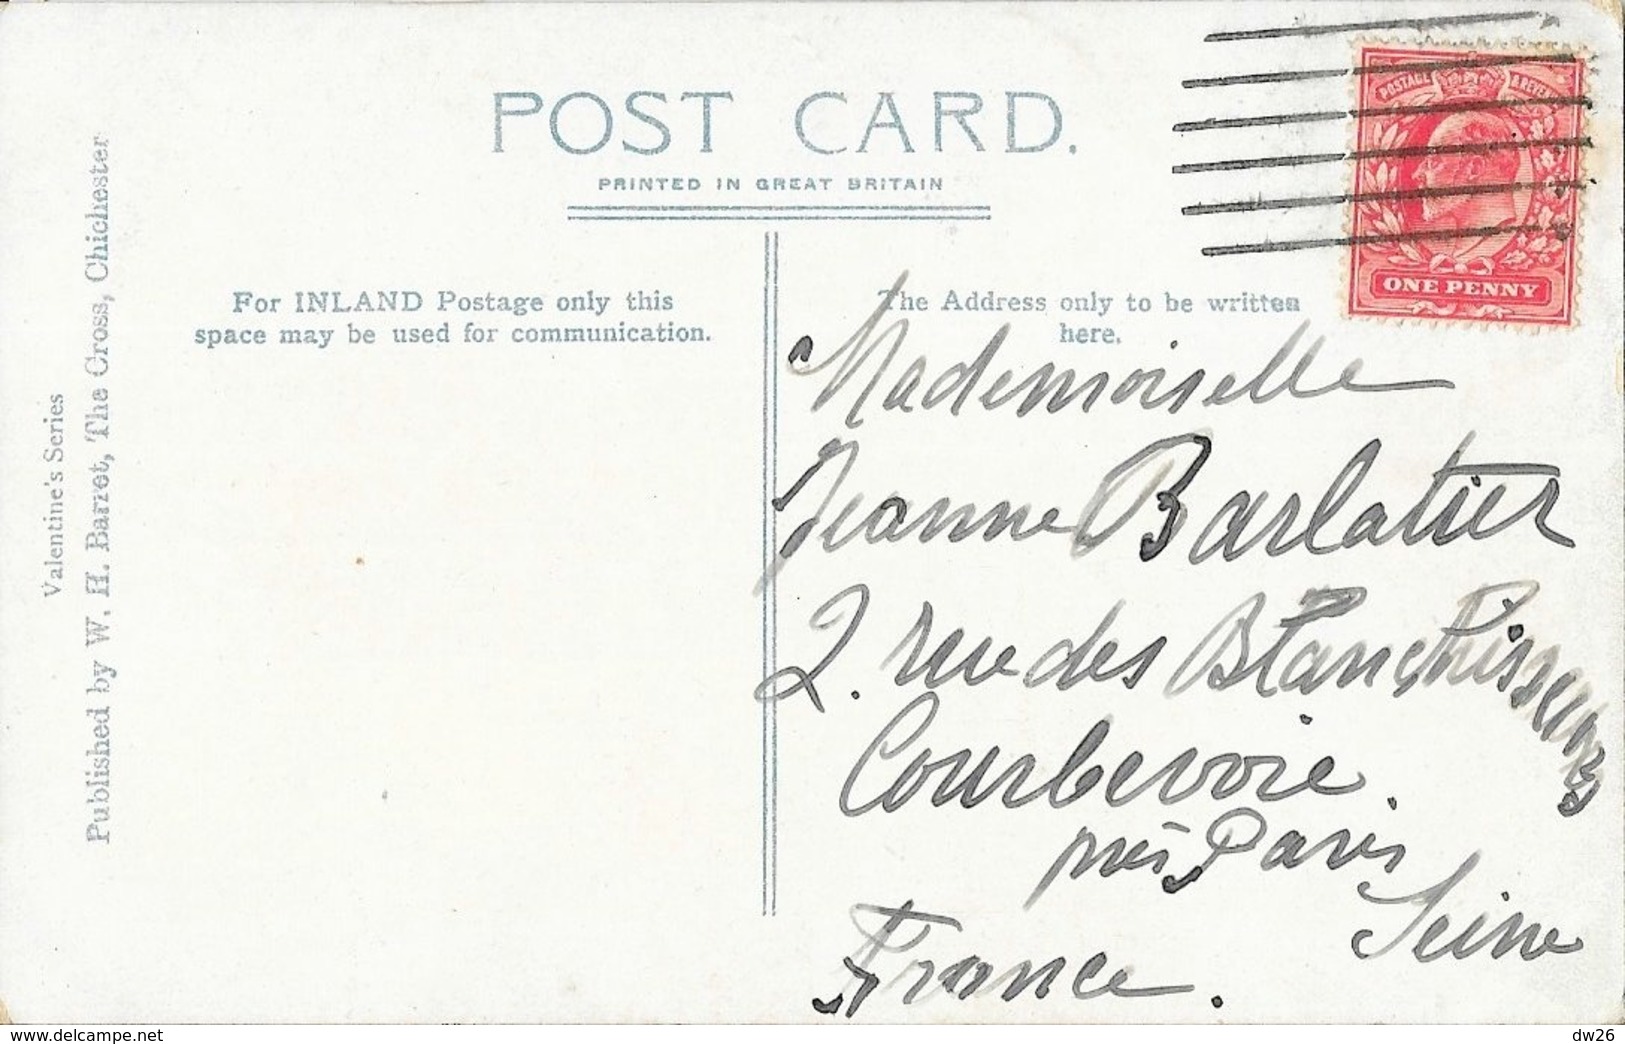 POST CARD.
PRINTED IN GREAT BRITAIN
For INLAND Postage only this
space may be used for communication.
The Address only to be written
here.
POSTAGE & REVENUE
ONE PENNY
Mademoiselle
Jeanne Barlatier
2. rue des Blanchisseurs
Courbevoie.
près Paris
Seine
France.
Valentine's Series
Published by W. H. Barret, The Cross, Chichester
delcampe.net
dw26